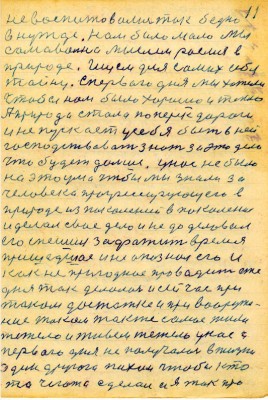 11
не воспитовались так бедно
в нужде. Нам было мало мы
самовольно мысли росли в
природе. Ищем для самих себя
тайну. С первого дня мы хотели
чтобы нам было хорошо и тепло
А природа стала поперек дороги
и не пускает у себя быть в ней
господствовать знать за это дело
что будет дальше. у нас не было
на это ума чтобы мы знали за
человека прогрессирующего в
природе из поколений в поколения
и делал свое дело и не доделовал
его спешил захватить время
пришедшее и не опознал его И
как не пригодное проводить эти
дня так делалось и сейчас при
таком достатке и при вооруже-
ние таком так же само живи
тяжело и живем тяжело у нас с
первого дня не получалось в жизни
Один другого пихали чтобы кто
то чего то сделал и я так про